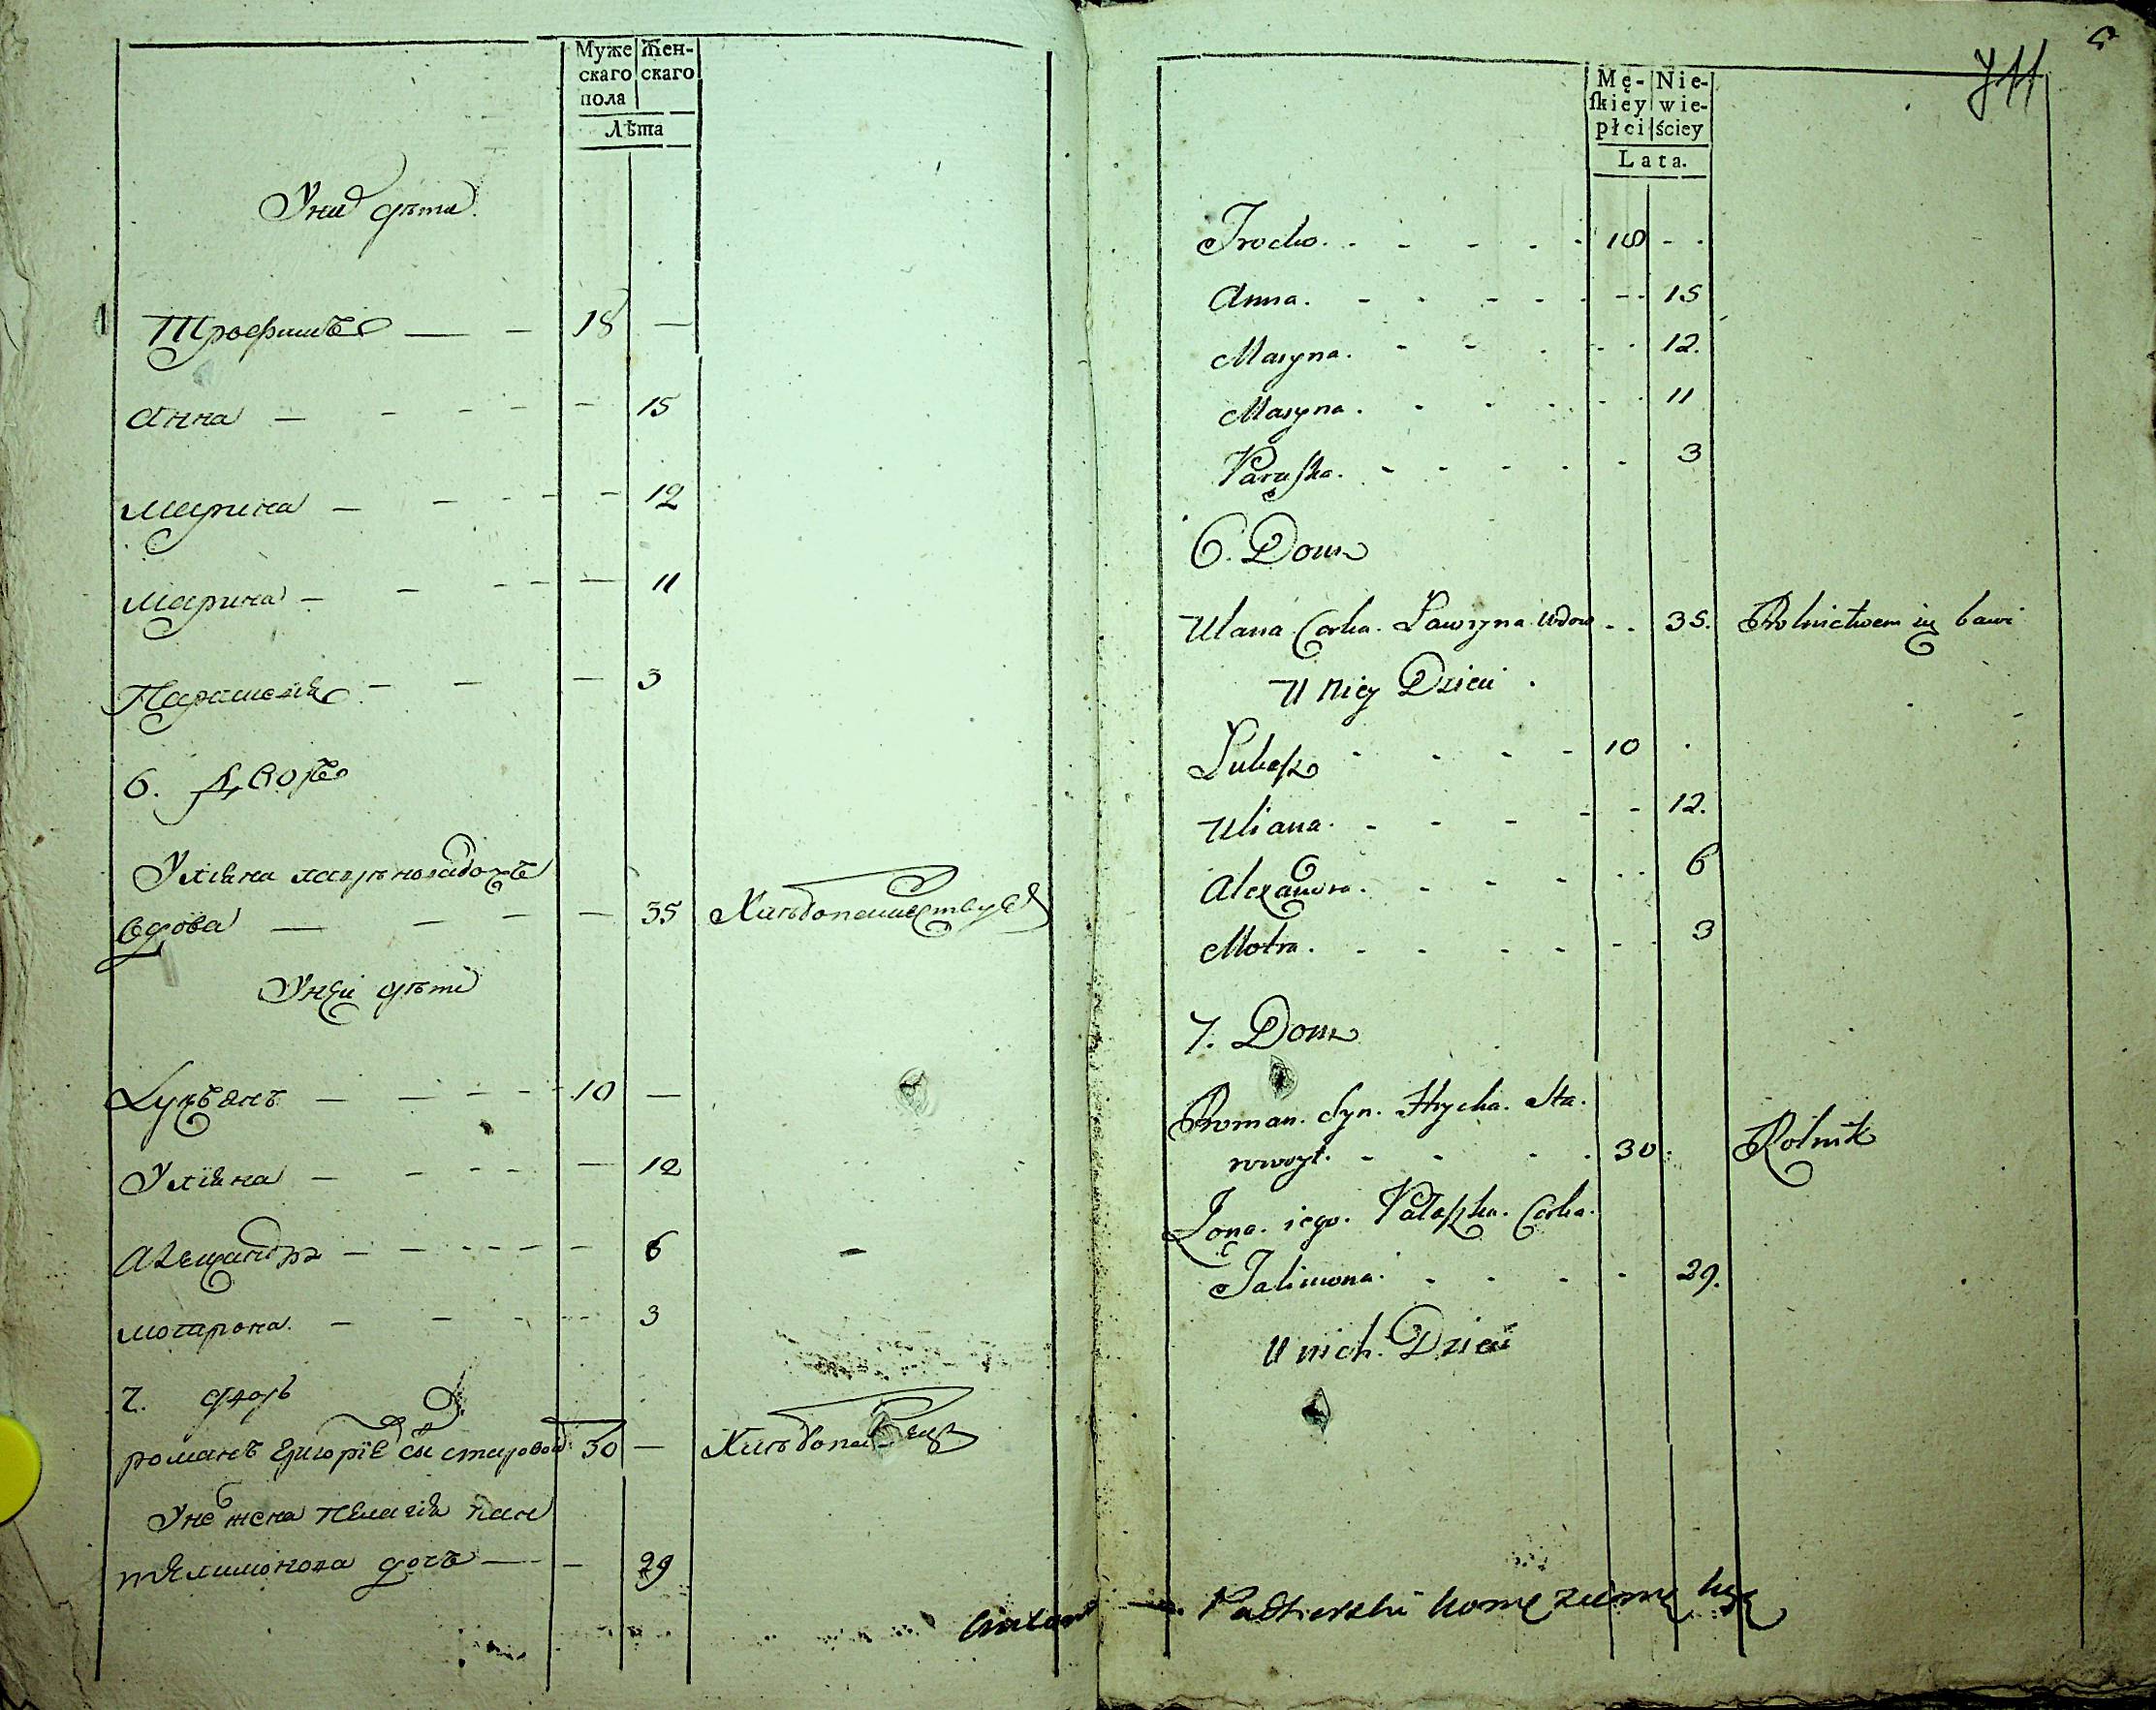 Муже Жен-
скаго скаго
пола
Лѣта
У ни дѣти
Трофимъ — — 18 —
Анна — - - - — 15
Марина — - - - — 12
Марина — - - - — 11
Парасковія - — — 3
6. Дворъ
Уліяна
вдова — — - — 35
У неи дѣти
Лукьянъ — — - - - 10 —
Уліяна — - - - — 12
Александра — — - - - — 6
Мотарона. — - - - 3
7. дворъ
романъ Григоріе сы 30 —
жена Пелагія Пан
телимонова дочъ — — 29
711
5
Mę- Nie-
ſkiey wie-
płci ściey
Lata.
Trocho. - - - - - 18 - -
Anna. - - - - - - 15
Maryna. - - - - - 12.
Maryna. - - - - - 11
Paraſka. - - - - - 3
6. Dom
Ulana Corka Ławryna wdow - - 35. Rolnictwem się bawi
U Niey Dzieci.
Łukaſz - - - - 10 .
Uliana. - - - - - 12.
Alexandra. - - - - - 6
Motra. - - - - - 3
7. Dom
Roman. Syn. Hrycka. Sta.
- - - - 30. Rolnik
Żona. iego. Pałaſzka. Corka.
Talimona. - - - - 29.
U nich. Dzieci